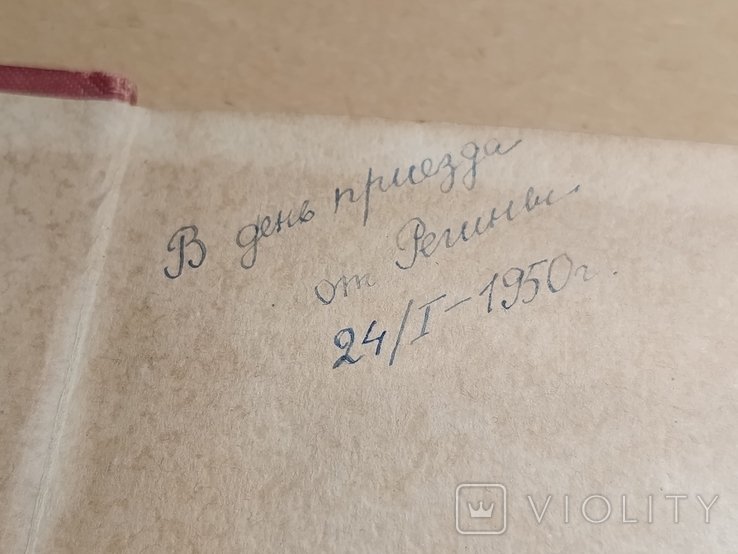 В день приезда
от Регины
24/I-1950г.
VIOLITY